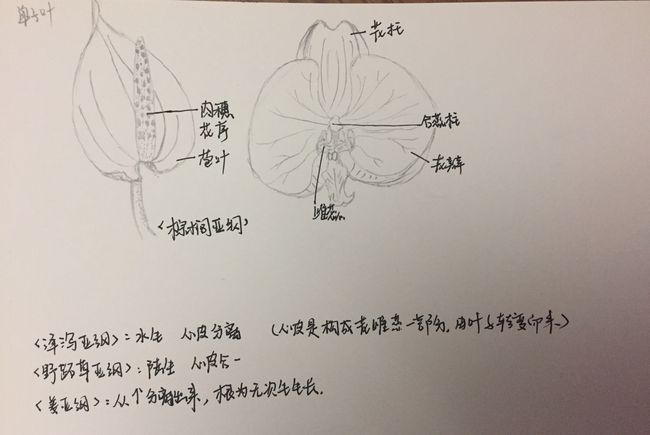 单子叶
花托
肉穗
花序
合蕊柱
苞叶
花瓣
雄蕊
<棕榈亚纲>
<泽泻亚纲>: 水生 心皮分离 (心皮是构成花雌蕊一部分, 由叶子转变而来)
<野路草亚纲>: 陆生 心皮合一
<姜亚纲>: 从个分离出来, 根为无次生生长.